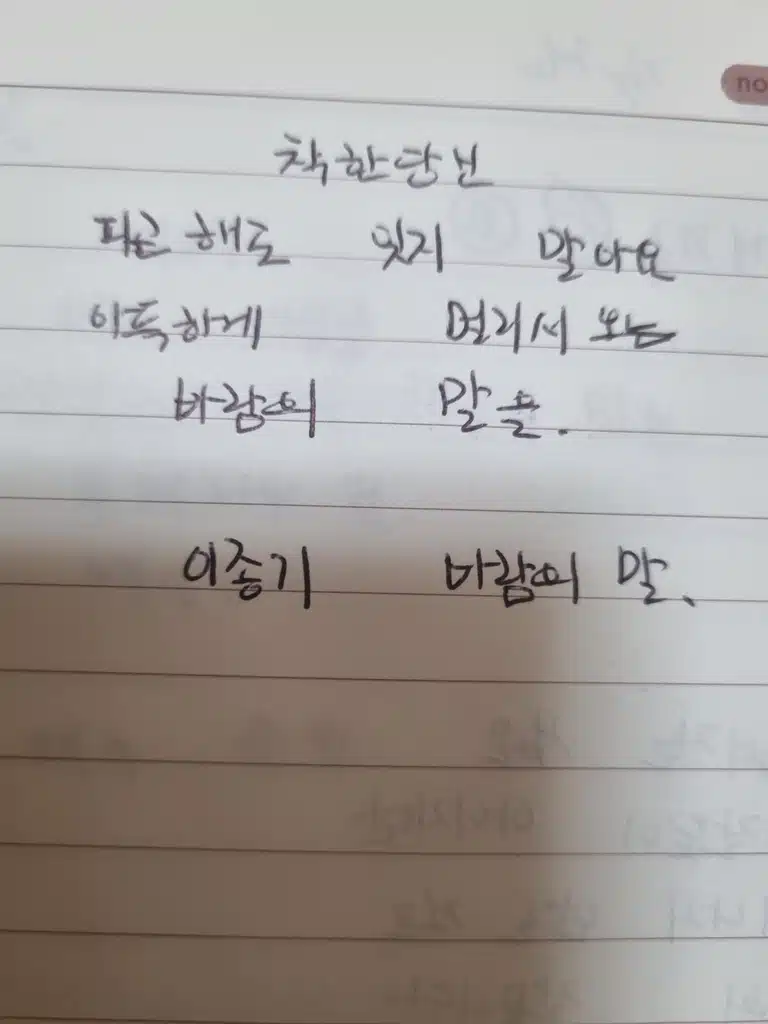 no
착한 당신
피곤해도 잊지 말아요
아득하게 멀리서 오는
바람의 말을.
이종기 바람의 말.